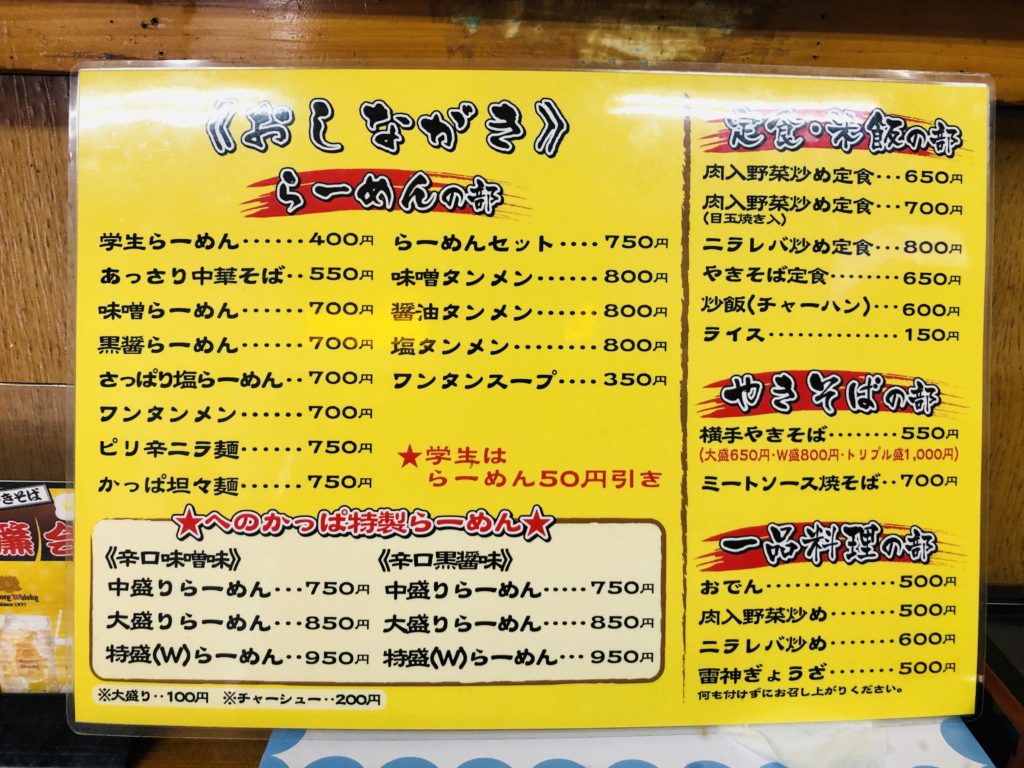 《おしながき》
らーめんの部
学生らーめん‥‥‥400円
あっさり中華そば‥550円
味噌らーめん‥‥‥700円
黒醤らーめん‥‥‥700円
さっぱり塩らーめん‥700円
ワンタンメン‥‥‥700円
ピリ辛ニラ麺‥‥‥750円
かっぱ坦々麺‥‥‥750円
らーめんセット‥‥750円
味噌タンメン‥‥‥800円
醤油タンメン‥‥‥800円
塩タンメン‥‥‥‥800円
ワンタンスープ‥‥350円
★学生は
らーめん50円引き
★へのかっぱ特製らーめん★
《辛口味噌味》
中盛りらーめん‥‥750円
大盛りらーめん‥‥850円
特盛(W)らーめん‥950円
《辛口黒醤味》
中盛りらーめん‥‥750円
大盛りらーめん‥‥850円
特盛(W)らーめん‥950円
※大盛り‥100円 ※チャーシュー‥200円
定食・米飯の部
肉入野菜炒め定食…650円
肉入野菜炒め定食…700円
(目玉焼き入)
ニラレバ炒め定食…800円
やきそば定食‥‥‥650円
炒飯(チャーハン)…600円
ライス‥‥‥‥‥‥150円
やきそばの部
横手やきそば‥‥‥550円
(大盛650円・W盛800円・トリプル盛1,000円)
ミートソース焼そば‥700円
一品料理の部
おでん‥‥‥‥‥‥500円
肉入野菜炒め‥‥‥500円
ニラレバ炒め‥‥‥600円
雷神ぎょうざ‥‥‥500円
何も付けずにお召し上がりください。
きそば